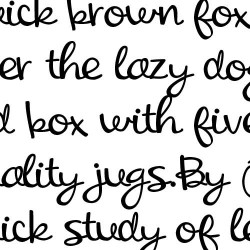 ick brown fox
er the lazy do
d box with five
ality jugs.By (
ick study of l